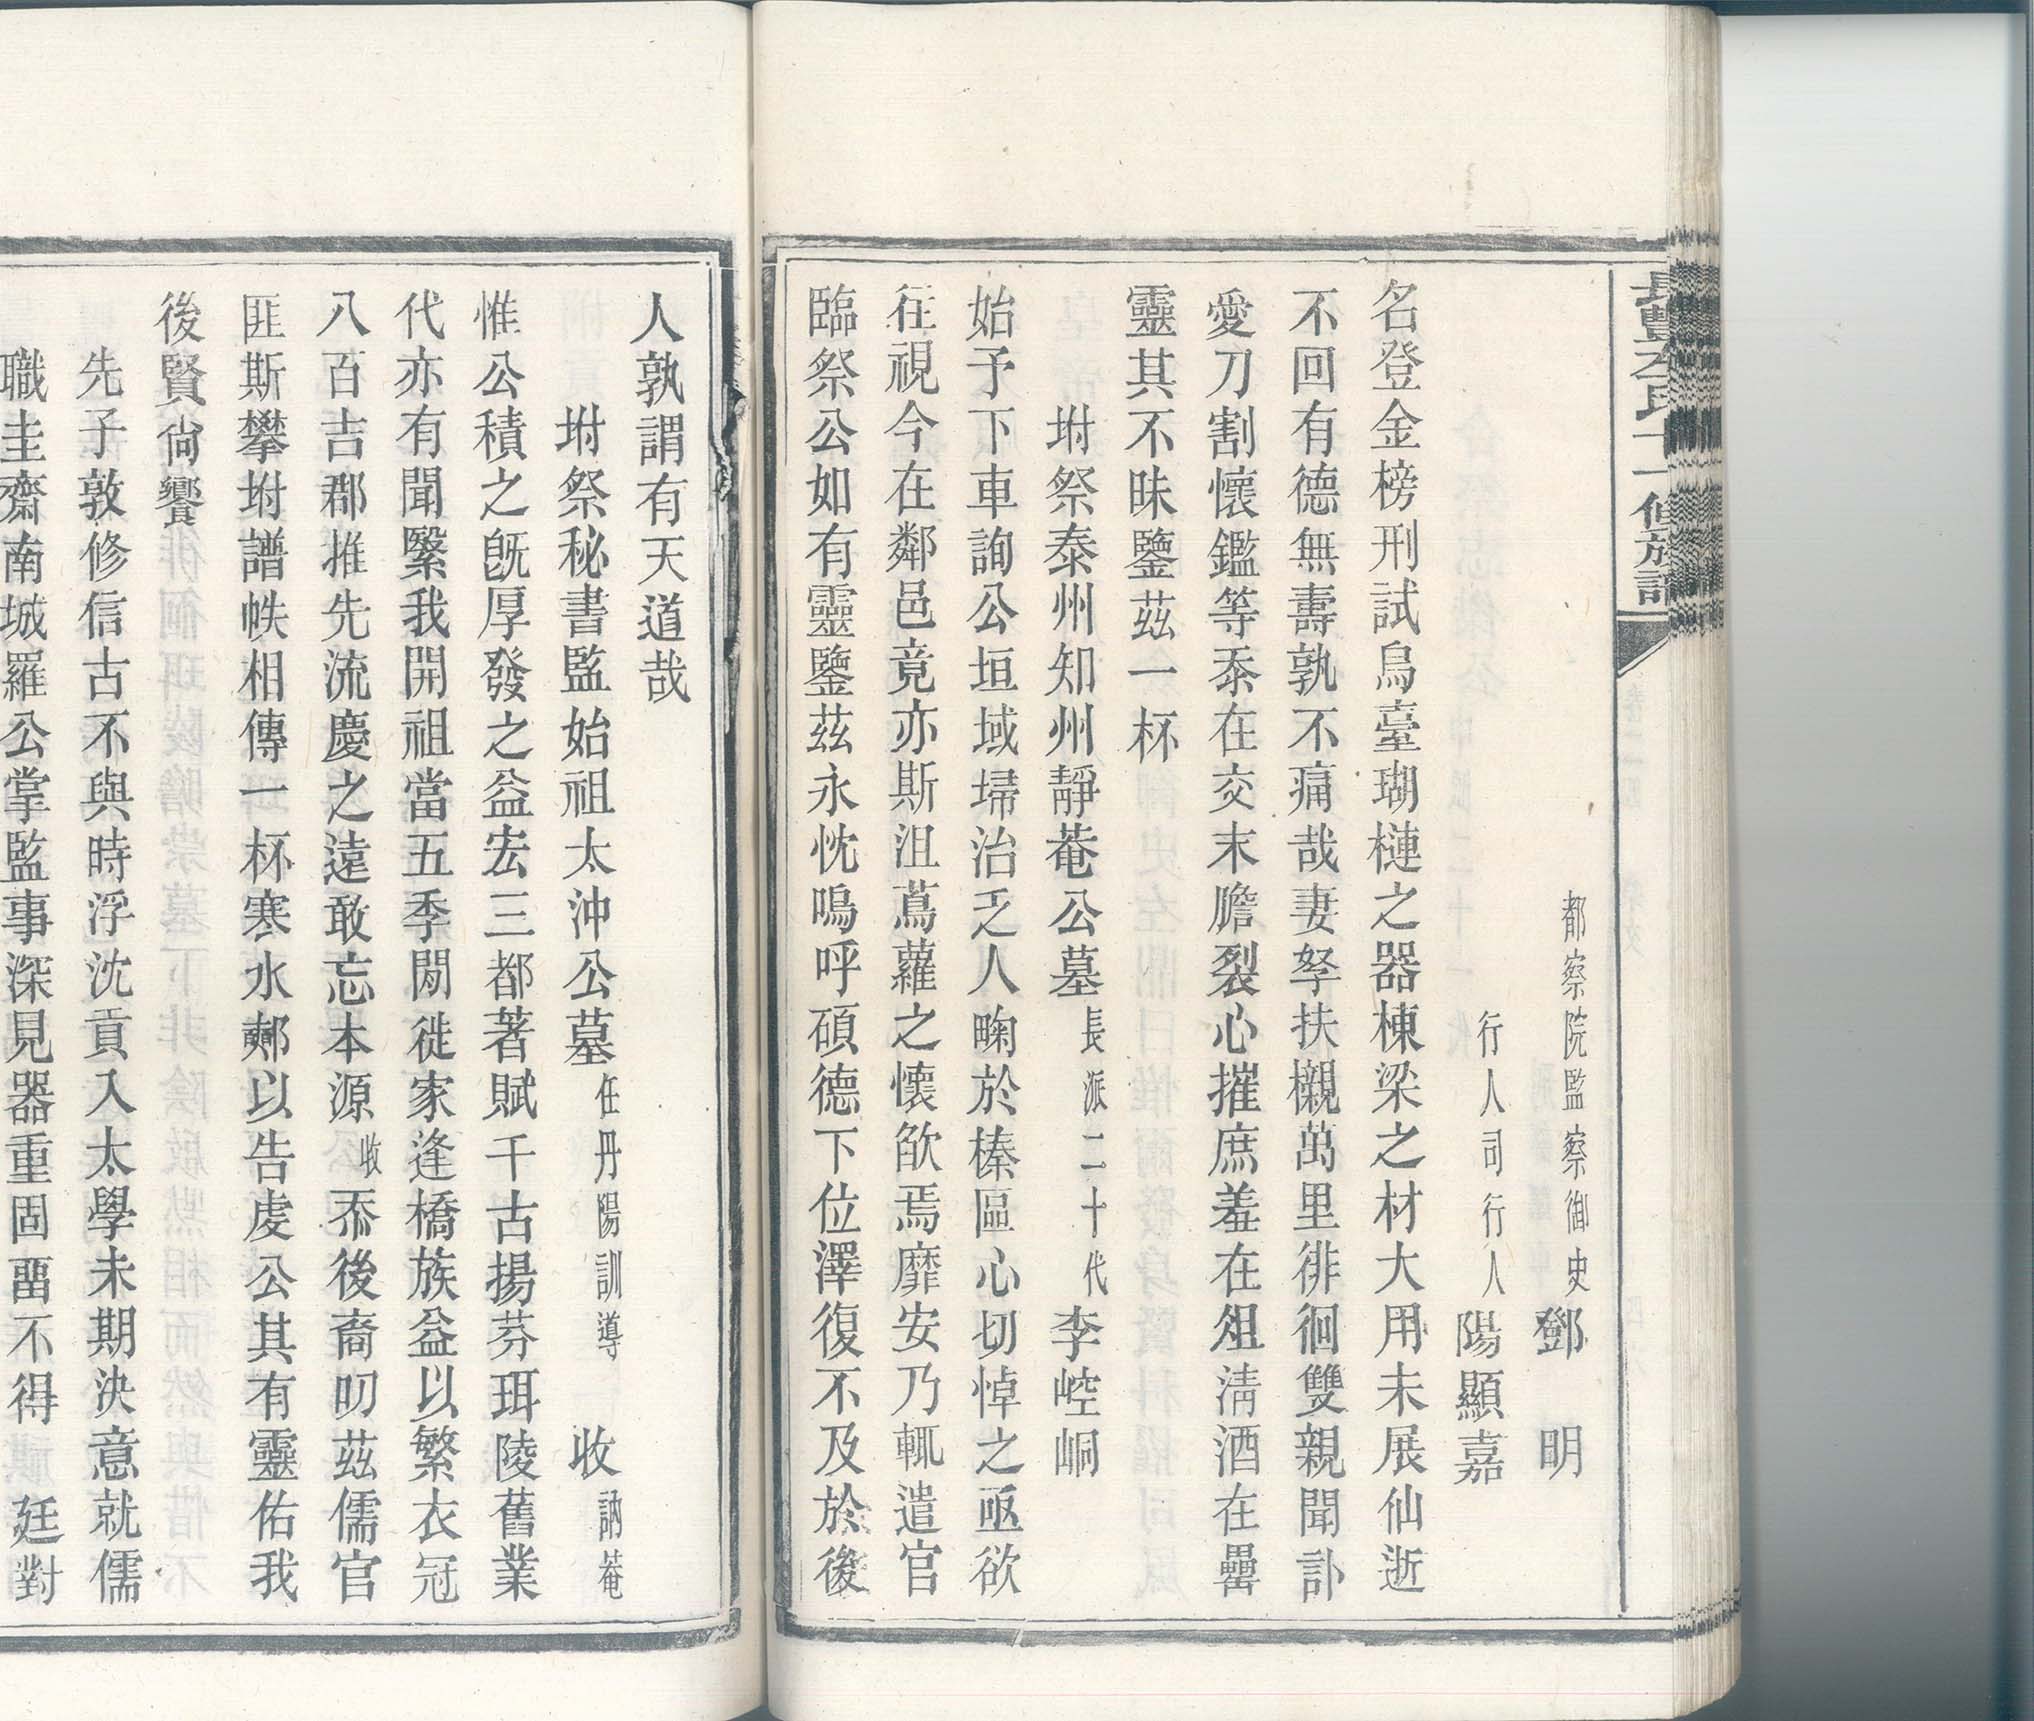 長豐李氏十一修族譜
都察院監察御史鄧　明
行人司行人陽顯嘉
名登金榜刑試烏臺瑚槤之器棟梁之材大用未展仙逝
不回有德無壽孰不痛哉妻孥扶櫬萬里徘徊雙親聞訃
愛刀割懷鑑等忝在交末膽裂心摧庶羞在俎淸酒在罍
靈其不昧鑒茲一杯
坿祭泰州知州靜菴公墓長派二十代李崆峒
始予下車詢公垣域埽治乏人畮於榛區心切悼之亟欲
往視今在鄰邑竟亦斯沮蔦蘿之懷飮焉靡安乃輒遣官
臨祭公如有靈鑒茲永忱嗚呼碩德下位澤復不及於後
人孰謂有天道哉
坿祭秘書監始祖太沖公墓任丹陽訓導　收訥菴
惟公積之旣厚發之益宏三都著賦千古揚芬珥陵舊業
代亦有聞繄我開祖當五季閒徙家逢橋族益以繁衣冠
八百吉郡推先流慶之遠敢忘本源收忝後裔叨茲儒官
匪斯攀坿譜帙相傳一杯寒水鄰以告虔公其有靈佑我
後賢尙饗
先子敦修信古不與時浮沈貢入太學未期決意就儒
職圭齋南城羅公掌監事深見器重固畱不得　廷對